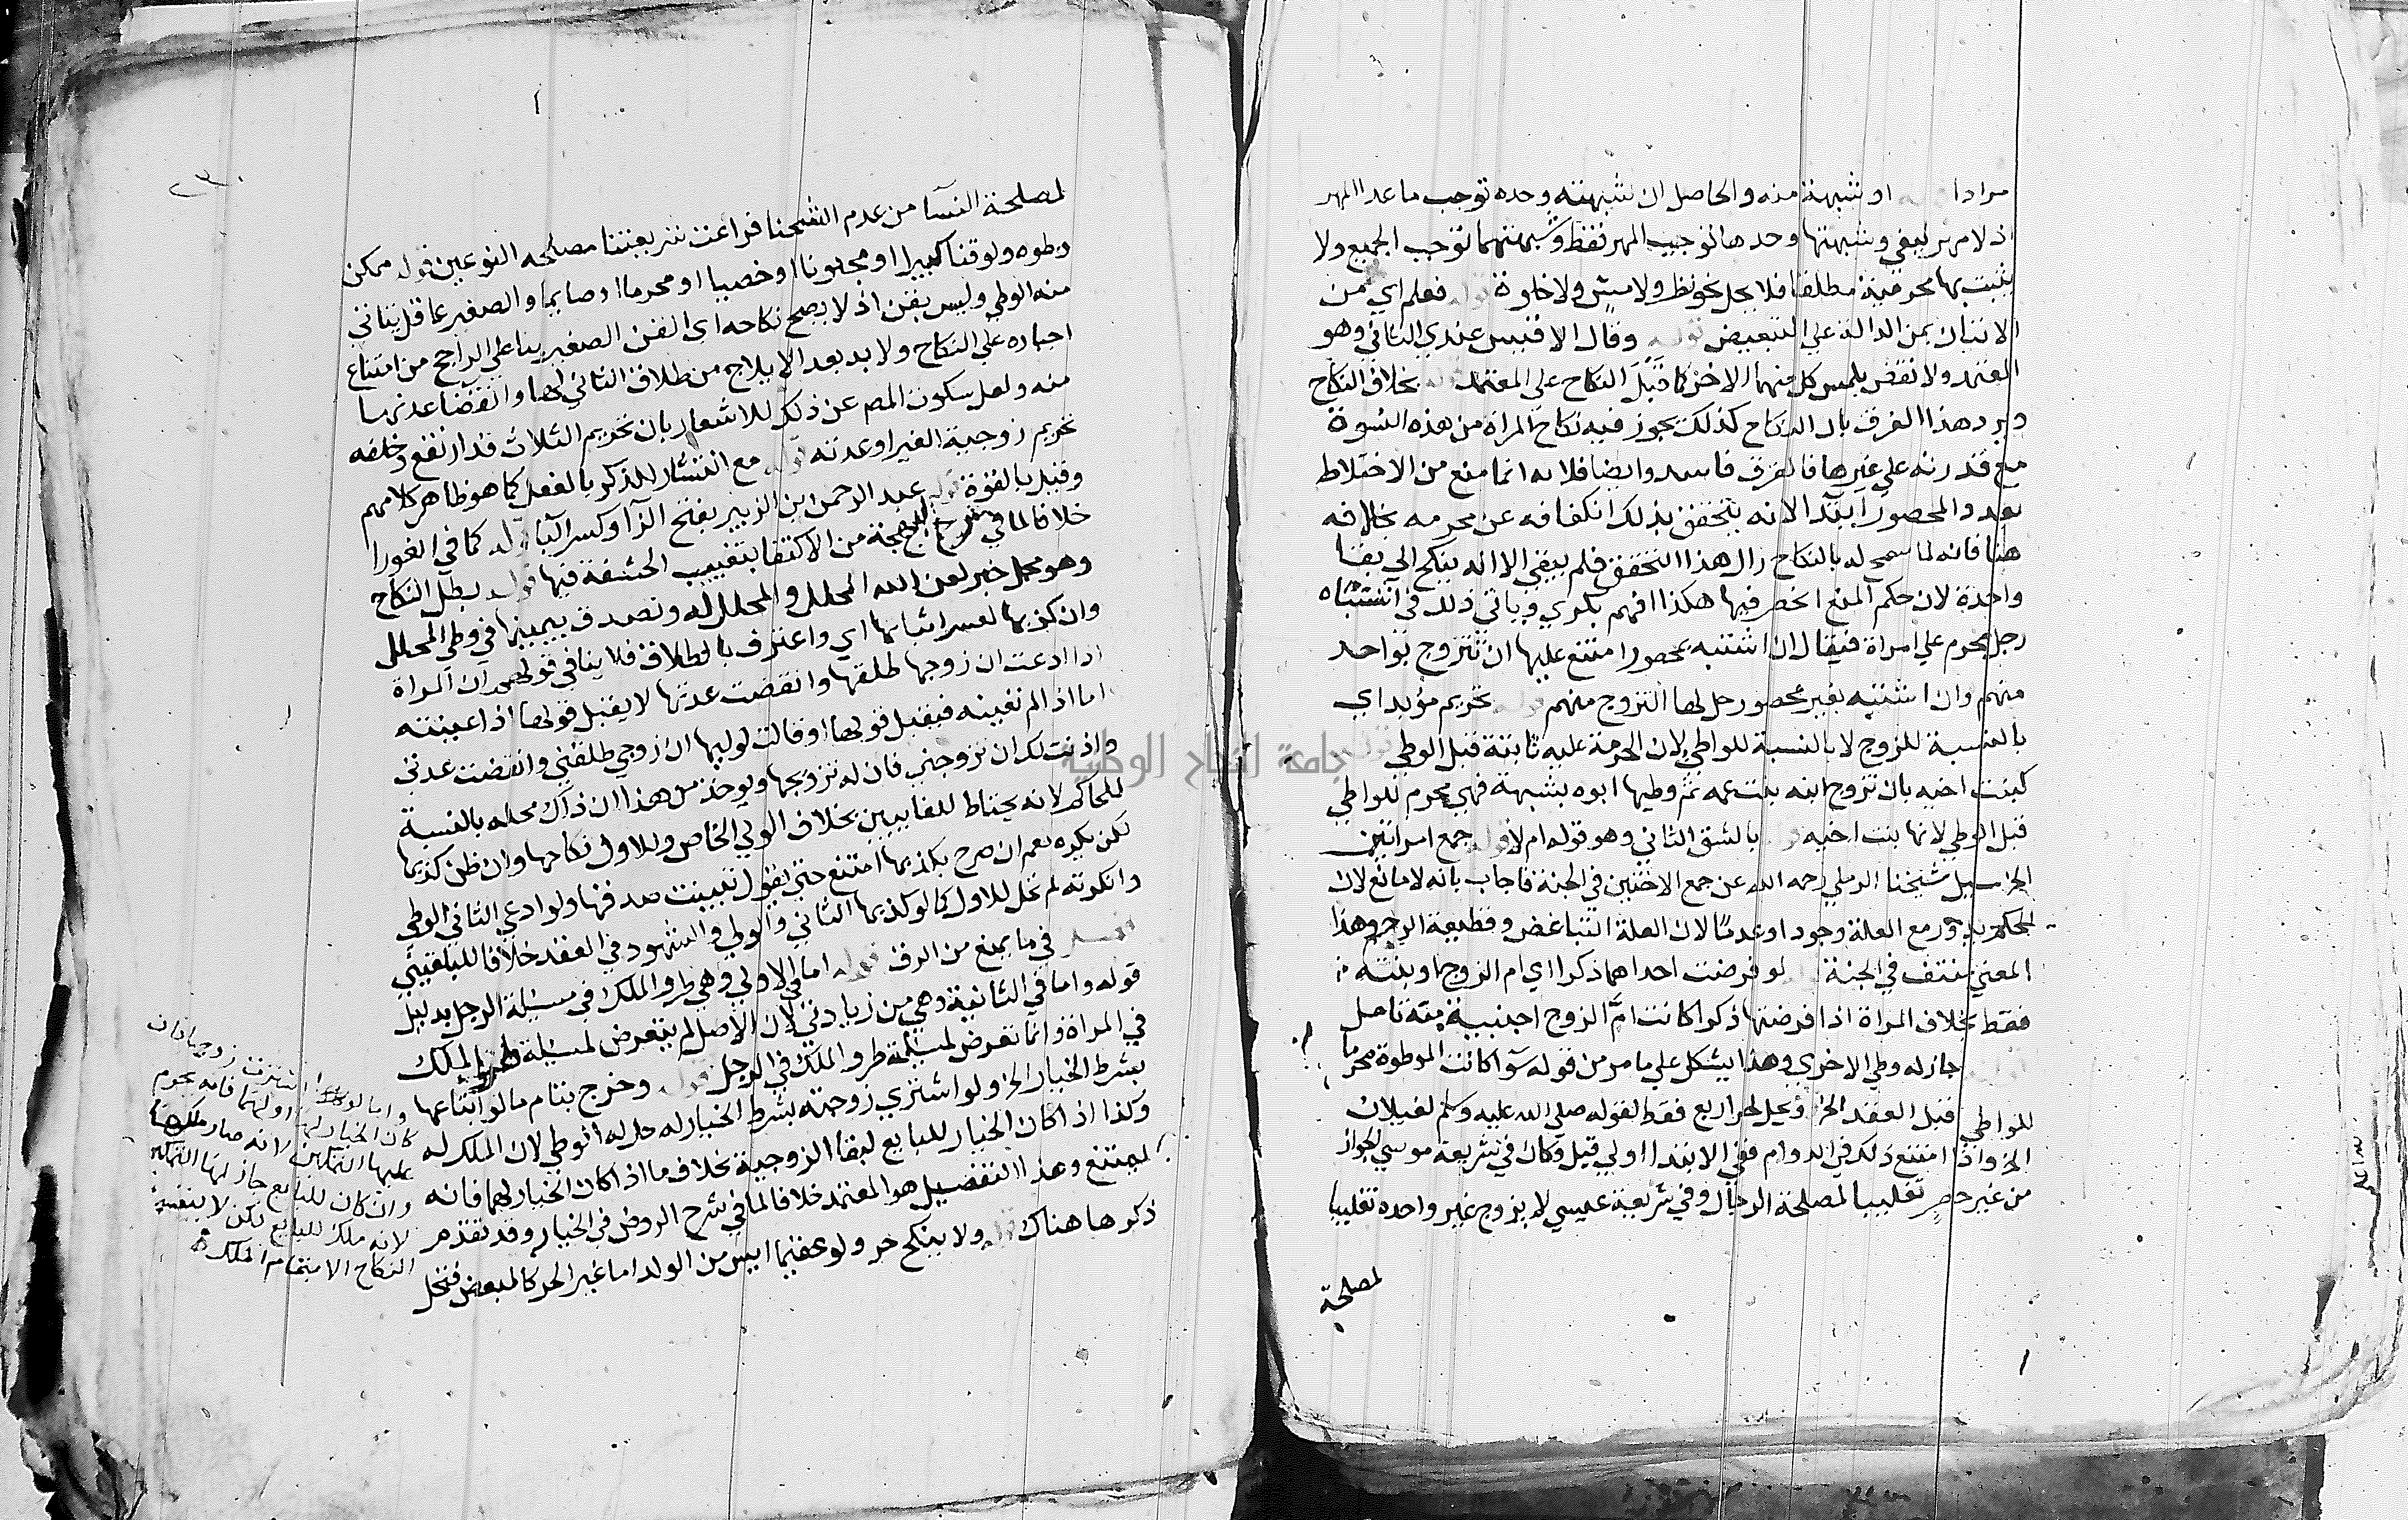 مرادا او شبهة منه والحاصل ان شبهته وحده توجب ما عدا المهر
اذ لا مهر لبغي وشبهتها وحدها توجب المهر فقط وشبهتهما توجب الجميع ولا
يثبت بها محرمية مطلقا فلا يحل نحو نظر ولا مس ولا خلوة قوله فعلم اي من
الاتيان بمن الدالة علي التبعيض قوله وقال الاقيس عندي الثاني وهو
المعتمد ولا نقض بلمس كل منهما الاخر كما قبل النكاح علي المعتمد قوله بخلاف النكاح
ويرد هذا الفرق بان النكاح كذلك يجوز فيه نكاح المراة من هذه النسوة
مع قدرته علي غيرها فالفرق فاسد وايضا فلانه انما منع من الاختلاط
بعدد المحصور ابتدا لانه يتحقق بذلك انكفافه عن محرمه بخلافه
هنا فانه لما سمح له بالنكاح زال هذا التحقق فلم يبقي الا انه ينكح الي بقا
واحدة لان حكم المنع انحصر فيها هكذا افهم بكري وياتي ذلك في اشتباه
رجل محرم علي امراة فيقال ان اشتبه بمحصور امتنع عليها ان تتزوج بواحد
منهم وان اشتبه بغير محصور حل لها التزوج منهم قوله تحريم مؤبد اي
بالنسبة للزوج لا بالنسبة للواطي لان الحرمة عليه ثابتة قبل الوطي قوله
كبنت اخيه بان تزوج ابنه بنت عمه ثم وطيها ابوه بشبهة فهي محرم للواطي
قبل الوطي لانها بنت اخيه قوله بالشق الثاني وهو قوله ام لا قوله جمع امراتين
الخ سيل شيخنا الرملي رحمه الله عن جمع الاختين في الجنة فاجاب بانه لا مانع لان
الحكم يدور مع العلة وجودا وعدما لان العلة التباغض وقطيعة الرحم وهذا
المعني منتف في الجنة قوله لو فرضت احداهما ذكرا اي ام الزوج او بنته
فقط بخلاف المراة اذا فرضتها ذكرا كانت ام الزوج اجنبية منه تامل
جاز له وطي الاخري وهذا يشكل علي ما مر من قوله سوا كانت الموطوة محرما
للواطي قبل العقد الخ ويحل لحر اربع فقط لقوله صلي الله عليه وسلم لغيلان
الخ واذا امتنع ذلك في الدوام ففي الابتدا اولي قيل وكان في شريعة موسي الجواز
من غير حصر تغليبا لمصلحة الرجال وفي شريعة عيسي لا يزوج غير واحدة تغليبا
لمصلحة
لمصلحة النسا من عدم الشحنا فراعت شريعتنا مصلحة النوعين قوله ممكن
وطوه ولو قنا كبيرا او مجنونا او خصيا او محرما او صايما والصغير عاقل يتاتي
منه الوطي وليس بقن اذ لا يصح نكاحه اي القن الصغير بنا علي الراجح من امتناع
اجباره علي النكاح ولا بد بعد الايلاج من طلاق الثاني لها وانقضا عدتها
منه ولعل سكوت المص عن ذلك للاشعار بان تحريم الثلاث قد ارتفع وخلفه
تحريم زوجية الغير او عدته قوله مع انتشار للذكر بالفعل كما هو ظاهر كلامهم
وقيل بالقوة قوله عبد الرحمن ابن الزبير بفتح الزا وكسر البا قوله كما في الغورا
خلافا لما في شرح البهجة من الاكتفا بتغييب الحشفة فيها قوله بطل النكاح
وهو محل خبر لعن الله المحلل والمحلل له وتصدق بيمينها في وطي المحلل
وان كذبها لعسر اثباتها اي واعترف بالطلاق فلا ينافي قولهم ان المراة
اذا ادعت ان زوجها طلقها وانقضت عدتها لا يقبل قولها اذا عينته
اما اذا لم تعينه فيقبل قولها او قالت لوليها ان زوجي طلقني وانقضت عدتي
واذنت لك ان تزوجني فان له تزويجها ويوخذ من هذا ان ذاك محله بالنسبة
للحاكم لانه يحتاط للغايبين بخلاف الولي الخاص وللاول نكاحها وان ظن كذبها
لكن يكره نعم ان صرح بكذبها امتنع حتي يقول تبينت صدقها ولو ادعي الثاني الوطي
وانكرته لم تحل للاول كما لو كذبها الثاني والولي والشهود في العقد خلافا للبلقيني
في ما يمنع من الرق قوله اما في الاولي وهي طرو الملك في مسيلة الرجل بدليل
قوله واما في الثانية وهي من زيادتي لان الاصل لم يتعرض لمسيلة طرو الملك
في المراة وانما تعرض لمسيلة طرو الملك في الرجل قوله وخرج بتام ما لو ابتاعها
بشرط الخيار الخ ولو اشتري زوجته بشرط الخيار له حل له الوطي لان الملك له
وكذا اذا كان الخيار للبايع لبقا الزوجية بخلاف ما اذا كان الخيار لهما فانه
يمتنع وهذا التفصيل هو المعتمد خلافا لما في شرح الروض في الخيار وقد تقدم
ذكرها هناك قوله ولا ينكح حر ولو عقيما ايس من الولد اما غير الحر كالمبعض فتحل
واما لو اشترت زوجها فان
كان الخيار لها او لهما فانه يحرم
عليها التمكين لانه صار ملكها
وان كان للبايع جاز لها التمكين
لانه ملك للبايع لكن لا ينفسخ
النكاح الا بتمام الملك
جامعة النجاح الوطنية